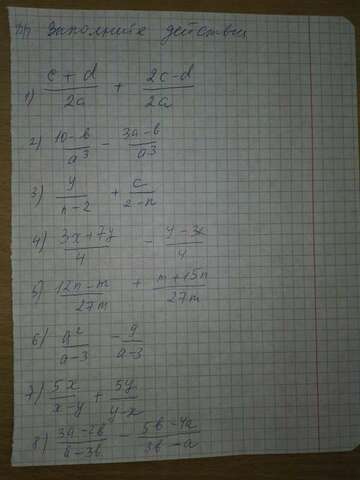 Заполните действи
1) (c + d)/2a + (2c-d)/2a
2) (10-b)/a³ - (3a-b)/a³
3) y/(n-2) + c/(2-n)
4) (3x+7y)/4 - (y-3x)/4
5) (12n-m)/27m + (m+15n)/27m
6) a²/(a-3) - 9/(a-3)
7) 5x/(x-y) + 5y/(y-x)
8) (3a-2b)/(a-3b) - (5b-4a)/(3b-a)